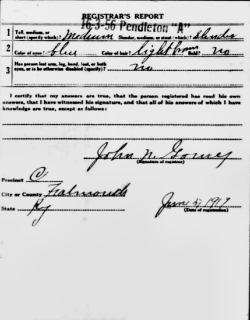 REGISTRAR'S REPORT
16-3-56 Pendleton "A"
1 Tall, medium, or short (specify which)? Medium Slender, medium, or stout (which)? Slender
2 Color of eyes? blue Color of hair? Light brown Bald? no
3 Has person lost arm, leg, hand, foot, or both eyes, or is he otherwise disabled (specify)? no
I certify that my answers are true, that the person registered has read his own answers, that I have witnessed his signature, and that all of his answers of which I have knowledge are true, except as follows:
John N.
(Signature of registrar)
Precinct C
City or County Falmouth
State Ky
June 5, 1917
(Date of registration)